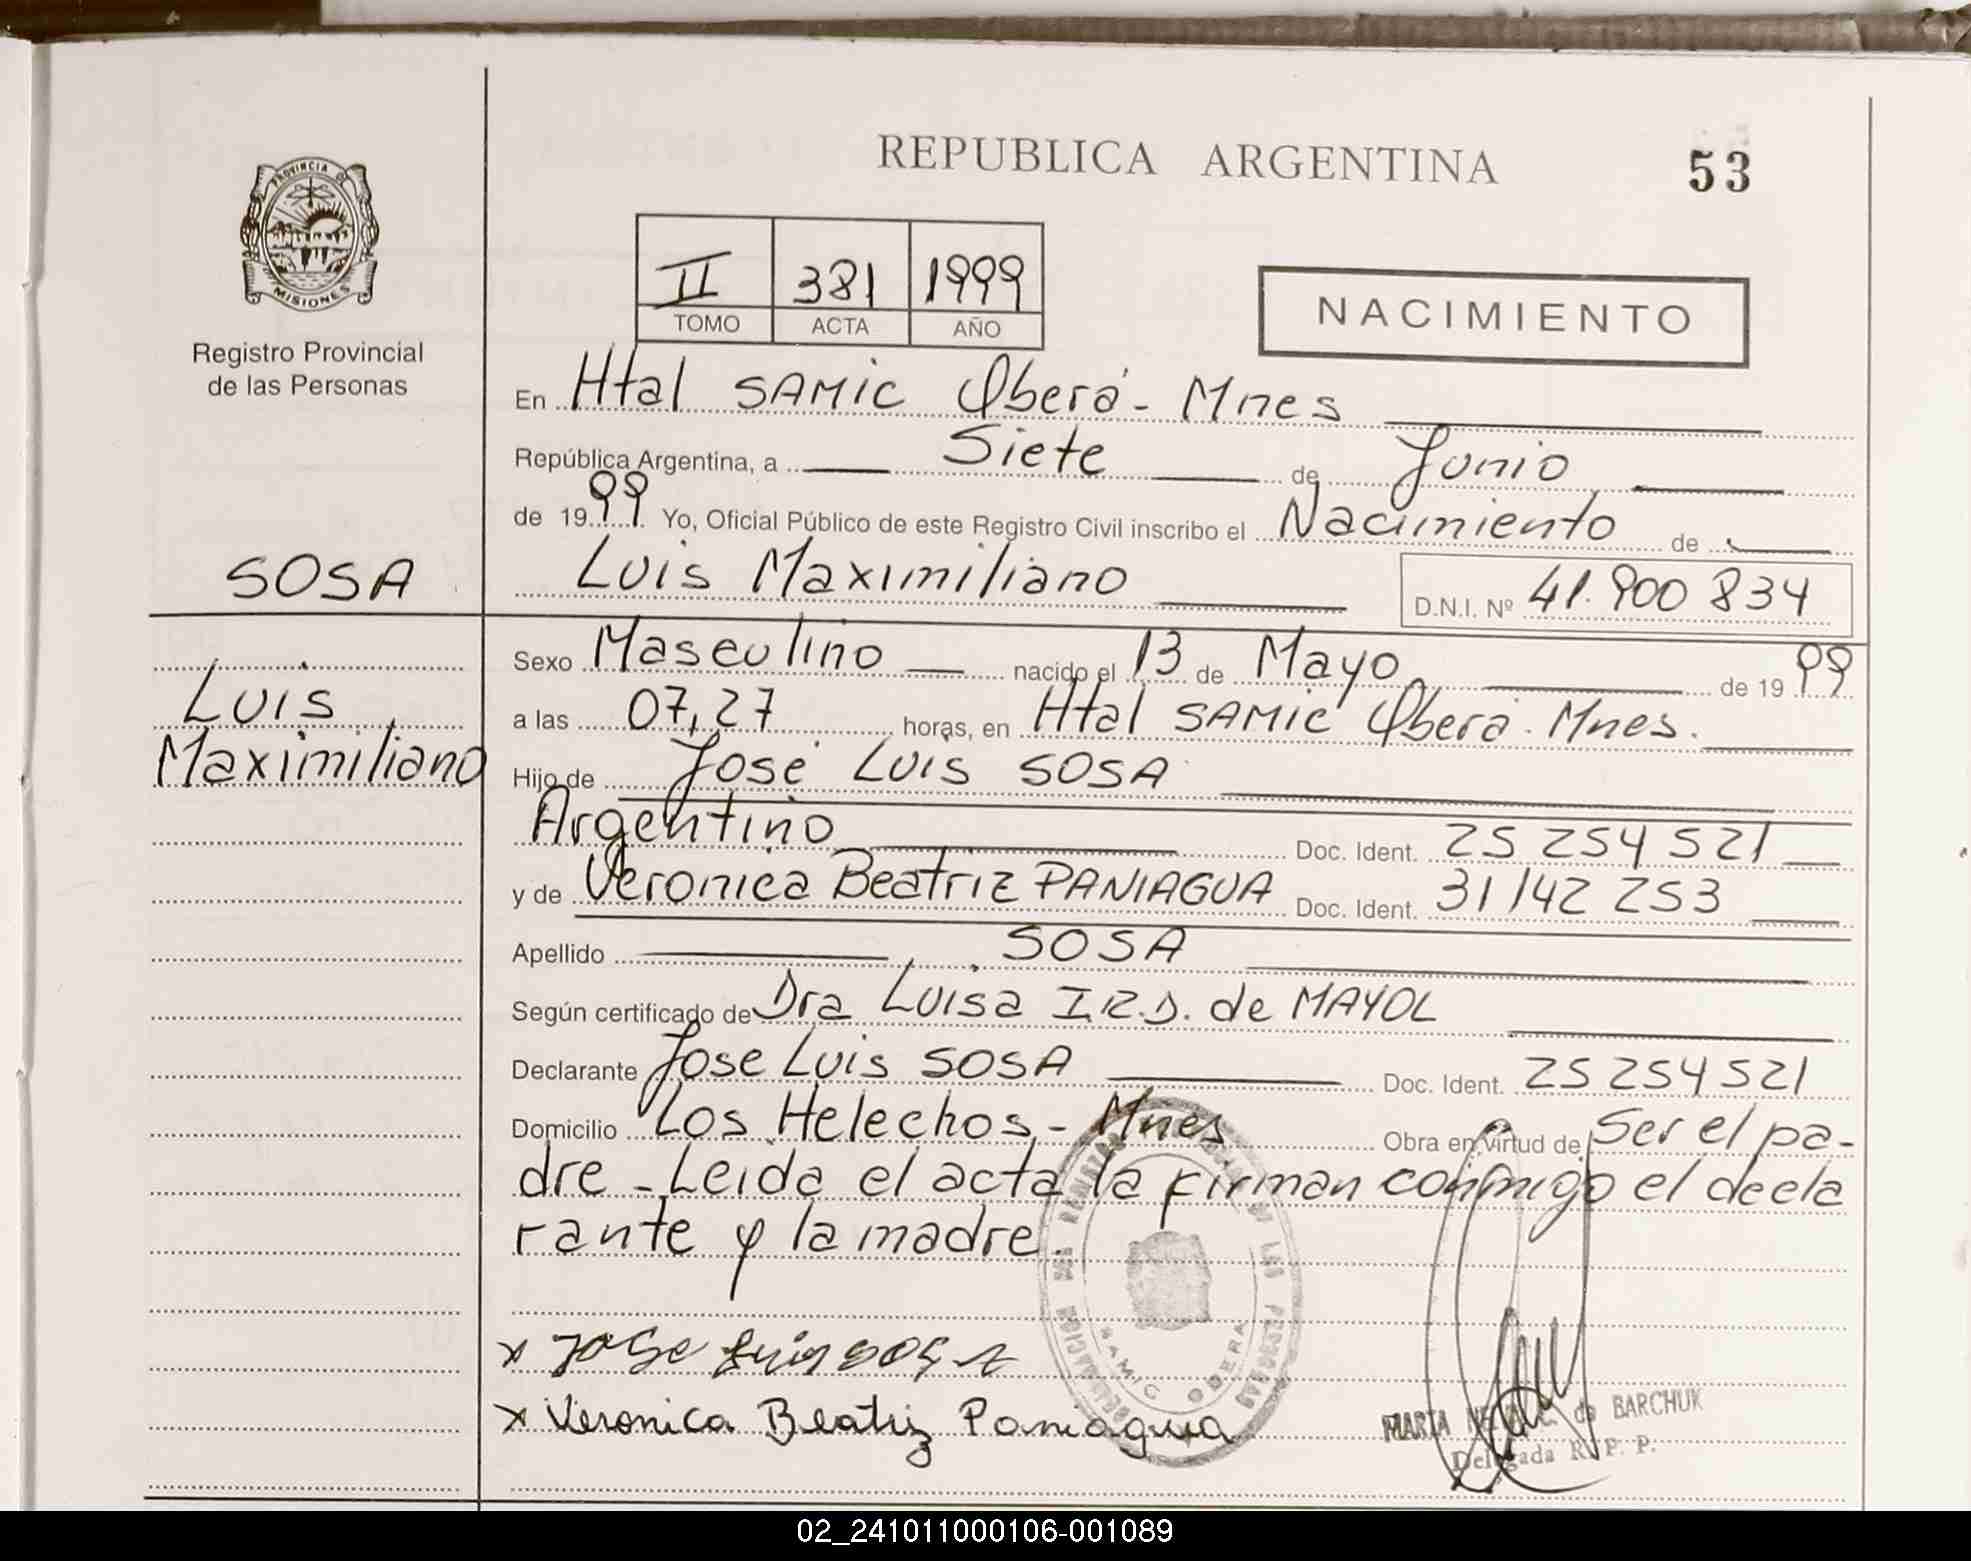 REPUBLICA ARGENTINA
53
PROVINCIA DE
MISIONES
Registro Provincial
de las Personas
II 381 1999
TOMO ACTA AÑO
NACIMIENTO
En Htal SAMIC Oberá - Mnes
República Argentina, a Siete de Junio
de 1999 Yo, Oficial Público de este Registro Civil inscribo el Nacimiento de
SOSA
Luis Maximiliano
D.N.I. Nº 41.900 834
Luis
Maximiliano
Sexo Masculino nacido el 13 de Mayo de 1999
a las 07,27 horas, en Htal SAMIC Oberá. Mnes.
Hijo de José Luis SOSA
Argentino Doc. Ident. 25 254 521
y de Veronica Beatriz PANIAGUA Doc. Ident. 31 142 253
Apellido SOSA
Según certificado de Dra Luisa I.R.D. de MAYOL
Declarante Jose Luis SOSA Doc. Ident. 25 254 521
Domicilio Los Helechos - Mnes Obra en virtud de Ser el pa-
dre - Leida el acta la firman conmigo el decla
rante y la madre.
x Jose Luis SOSA
x Veronica Beatriz Paniagua
SAMIC OBERA
MARTA de BARCHUK
Delegada R. P. P.
02_241011000106-001089